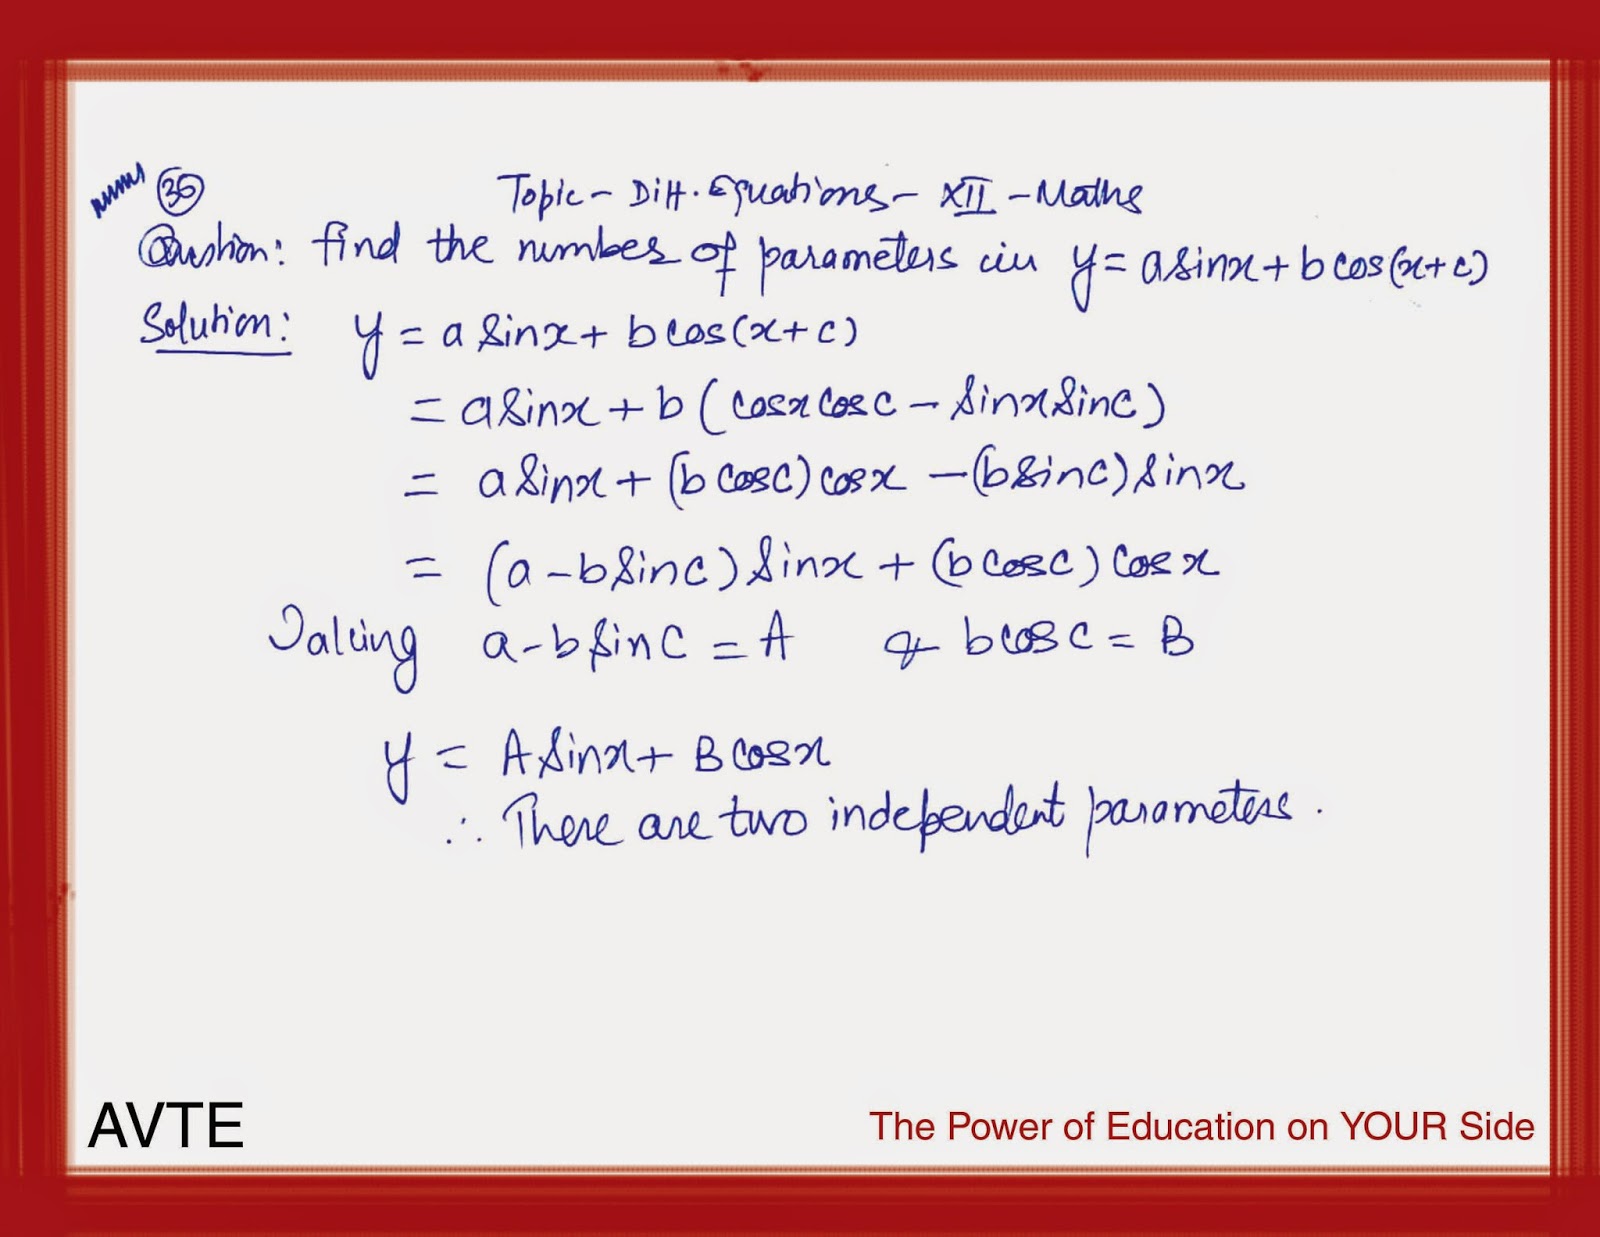 35
Topic - Diff. Equations - XII - Maths
Question: find the number of parameters in y = a sinx + b cos(x+c)
Solution: y = a sinx + b cos(x+c)
= a sinx + b (cosx cosc - sinx sinc)
= a sinx + (b cosc) cosx - (b sinc) sinx
= (a - b sinc) sinx + (b cosc) cosx
Taking a - b sinc = A & b cosc = B
y = A sinx + B cosx
∴ There are two independent parameters.
AVTE
The Power of Education on YOUR Side